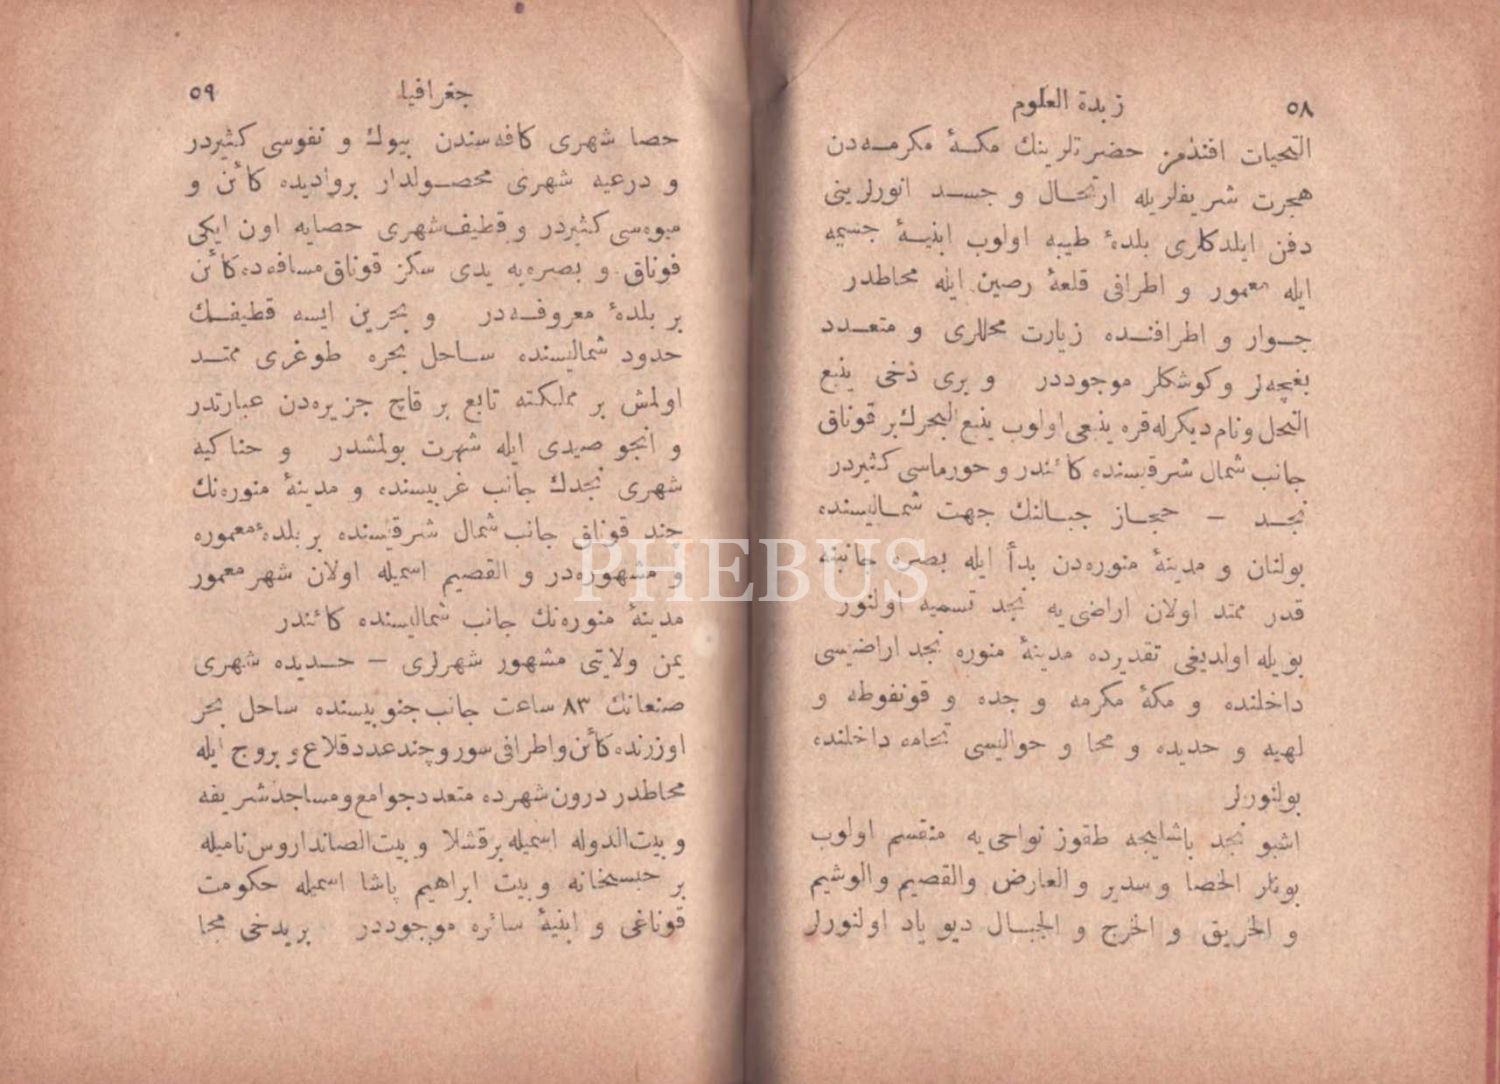 زبدة العلوم ٥٨
التحيات افندمز حضرتلرينك مكهٔ مكرمه‌دن
هجرت شريفلريله ارتحال و جسد انورلرينى
دفن ايلدكلرى بلدهٔ طيبه اولوب ابنيهٔ جسيمه
ايله معمور و اطرافى قلعهٔ رصين ايله محاطدر
جوار و اطرافنده زيارت محللرى و متعدد
بغچه‌لر و كوشكلر موجوددر و برى دخى ينبع
النحل ونام ديكرله قره ينبعى اولوب ينبع البحرك بر قوناق
جانب شمال شرقيسنده كائندر و خورماسى كثيردر
نجد – حجاز جبالنك جهت شماليسنده
بولنان و مدينهٔ منوره‌دن بدأ ايله بصره جانبنه
قدر ممتد اولان اراضى‌يه نجد تسميه اولنور
بويله اولديغى تقديرده مدينهٔ منوره نجد اراضيسى
داخلنده و مكهٔ مكرمه و جده و قونفوطه و
لهيه و حديده و مخا و حواليسى تهامه داخلنده
بولنورلر
اشبو نجد باشليجه طقوز نواحى‌يه منقسم اولوب
بونلر الحصا و سدير و العارض والقصيم والوشيم
و الحريق و الخرج و الجبال ديو ياد اولنورلر
جغرافيا ٥٩
حصا شهرى كافه‌سندن بيوك و نفوسى كثيردر
و درعيه شهرى محصولدار بر واديده كائن و
ميوه‌سى كثيردر و قطيف شهرى حصايه اون ايكى
قوناق و بصره‌يه يدى سكز قوناق مسافه‌ده كائن
بر بلدهٔ معروفه‌در و بحرين ايسه قطيفك
حدود شماليسنده ساحل بحره طوغرى ممتد
اولمش بر مملكته تابع بر قاچ جزيره‌دن عبارتدر
و انجو صيدى ايله شهرت بولمشدر و حناكيه
شهرى نجدك جانب غربيسنده و مدينهٔ منوره‌نك
چند قوناق جانب شمال شرقيسنده بر بلدهٔ معموره
و مشهوره‌در و القصيم اسميله اولان شهر معمور
مدينهٔ منوره‌نك جانب شماليسنده كائندر
يمن ولايتى مشهور شهرلرى – حديده شهرى
صنعانك ٨٣ ساعت جانب جنوبيسنده ساحل بحر
اوزرنده كائن و اطرافى سور و چند عدد قلاع و بروج ايله
محاطدر درون شهرده متعدد جوامع و مساجد شريفه
و بيت‌الدوله اسميله بر قشلا و بيت‌الصانداروس ناميله
بر حبسخانه و بيت ابراهيم پاشا اسميله حكومت
قوناغى و ابنيهٔ سائره موجوددر بريدخى مخا
PHEBUS